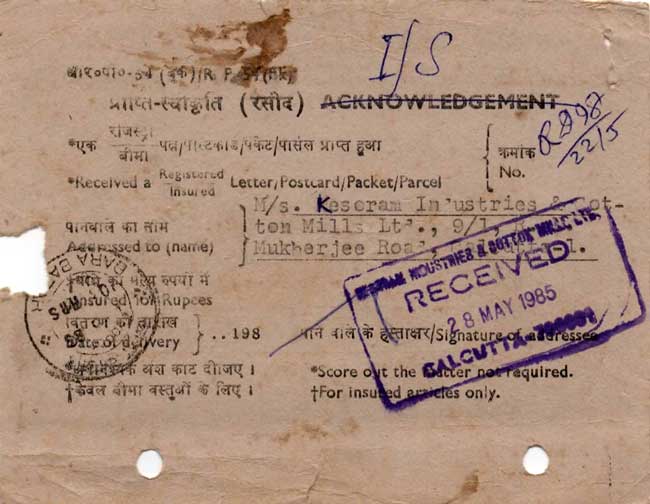 I/S
आर०पी०-54 (बुक)/R. P. 54(Bk)
प्राप्ति-स्वीकृति (रसीद) ACKNOWLEDGEMENT
22/5
*एक रजिस्ट्री/बीमा पत्र/पोस्टकार्ड/पैकेट/पार्सल प्राप्त हुआ
क्रमांक
No.
*Received a Registered/Insured Letter/Postcard/Packet/Parcel
M/s. Kesoram In'ustries & Cot-
ton Mills Lt'., 9/1,
Mukherjee Roa',
पानेवाले का नाम
Addressed to (name)
रुपयों में
Insured for Rupees
वितरण की तारीख
Date of delivery ..198
पाने वाले के हस्ताक्षर/Signature of addressee
*अनावश्यक अंश काट दीजिए।
*Score out the matter not required.
†केवल बीमा वस्तुओं के लिए।
†For insured articles only.
KESORAM INDUSTRIES & COTTON MILLS LTD.
RECEIVED
28 MAY 1985
CALCUTTA-700001
BARA BA